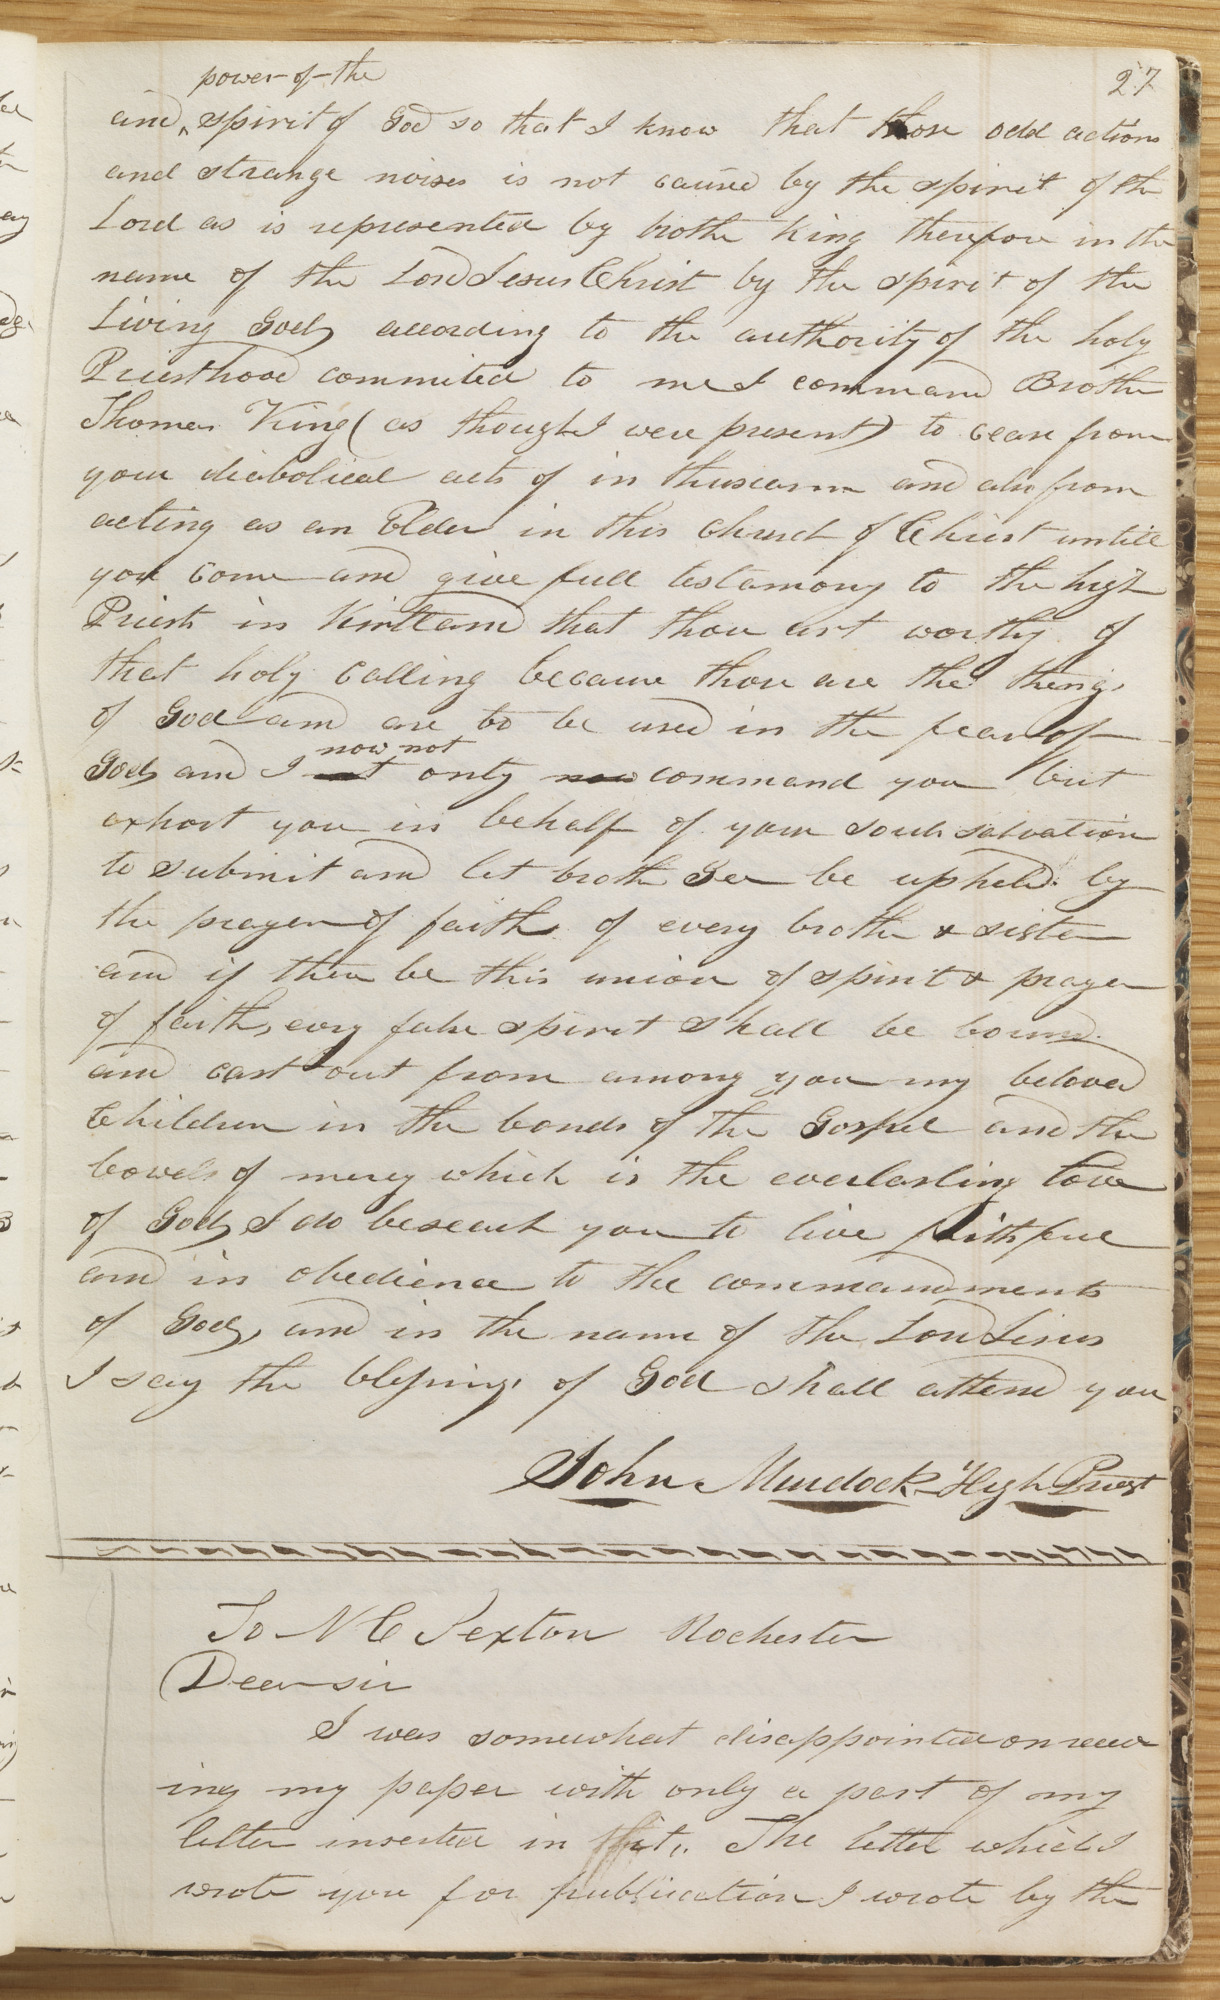 27
power-of-the
and, spirit of God so that I know that those odd actions
and strange noises is not caused by the spirit of the
Lord as is represented by brother King therefore in the
name of the Lord Jesus Christ by the spirit of the
Living God, according to the authority of the holy
Priesthood commited to me I command Brother
Thomas King (as though I were present) to cease from
your diabolical acts of in thusiasm and also from
acting as an Elder in this Church of Christ untill
you come and give full testamony to the high
Priests in Kirtland that thou art worthy of
that holy calling because those are the things
of God and are to be used in the fear of
now not
God, and I not only now command you but
exhort you in behalf of your souls salvation
to submit and let brother Gee be upheld by
the prayer of faith of every brother & sister
and if there be this union of spirit & prayer
of faith, evry false spirit shall be bound
and cast out from among you my beloved
Children in the bonds of the Gospel and the
bowels of mercy which is the everlasting love
of God, I do beseech you to live faithful
and in obedience to the commandments
of God, and in the name of the Lord Jesus
I say the blessings of God shall attend you
John Murdock High Priest
To N C Sexton Rochester
Dear sir
I was somewhat disappointed on receiv
ing my paper with only a part of my
letter inserted in it. The letter which I
wrote you for publication I wrote by the